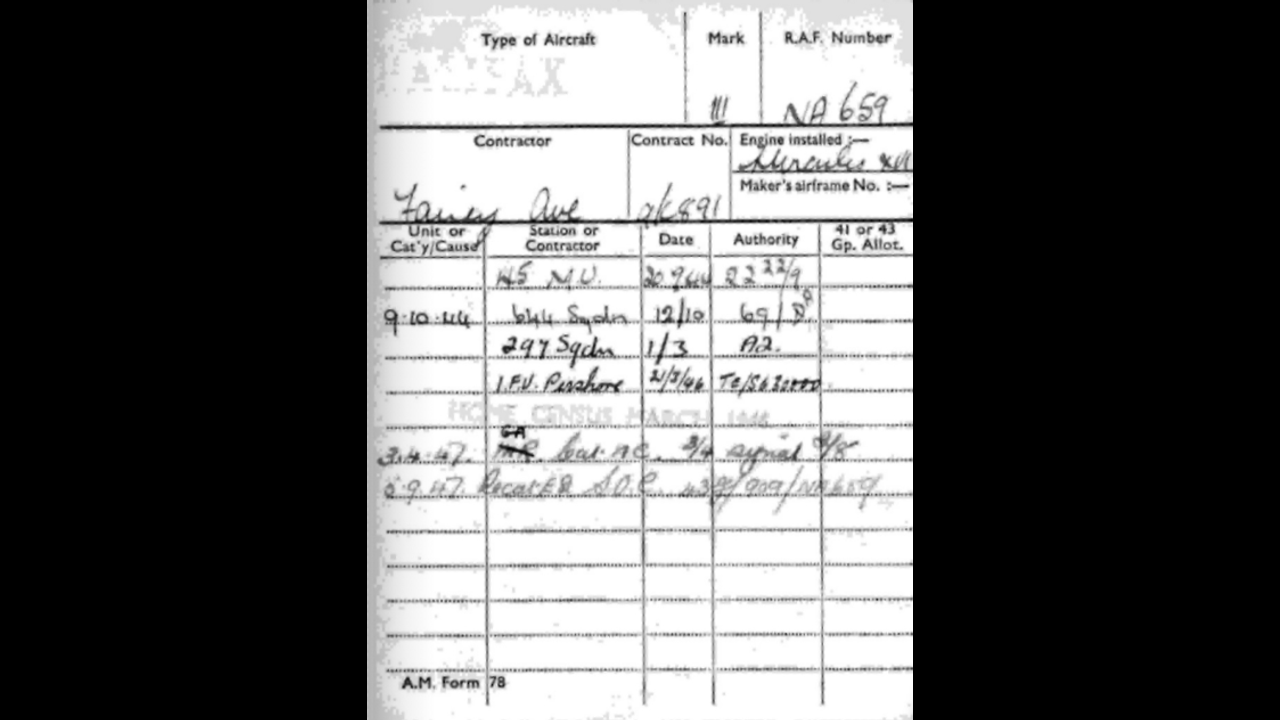 Type of Aircraft Mark R.A.F. Number
HALIFAX
III NA 659
Contractor Contract No. Engine installed :—
Hercules XVI
Maker's airframe No. :—
Fairey Ave
Unit or Cat'y/Cause Station or Contractor Date Authority 41 or 43 Gp. Allot.
45 M.U. 20.9.44 22 22/9
9.10.44 644 Sqdn 12/10 69/
297 Sqdn 1/3 A2.
1.F.U. Pershore 21/3/46
HOME CENSUS MARCH 1946
GA
3.4.47. Cat. A.C. 3/4 signal
5.9.47. Recat E2 S.O.C. /909/NA659/
A.M. Form 78